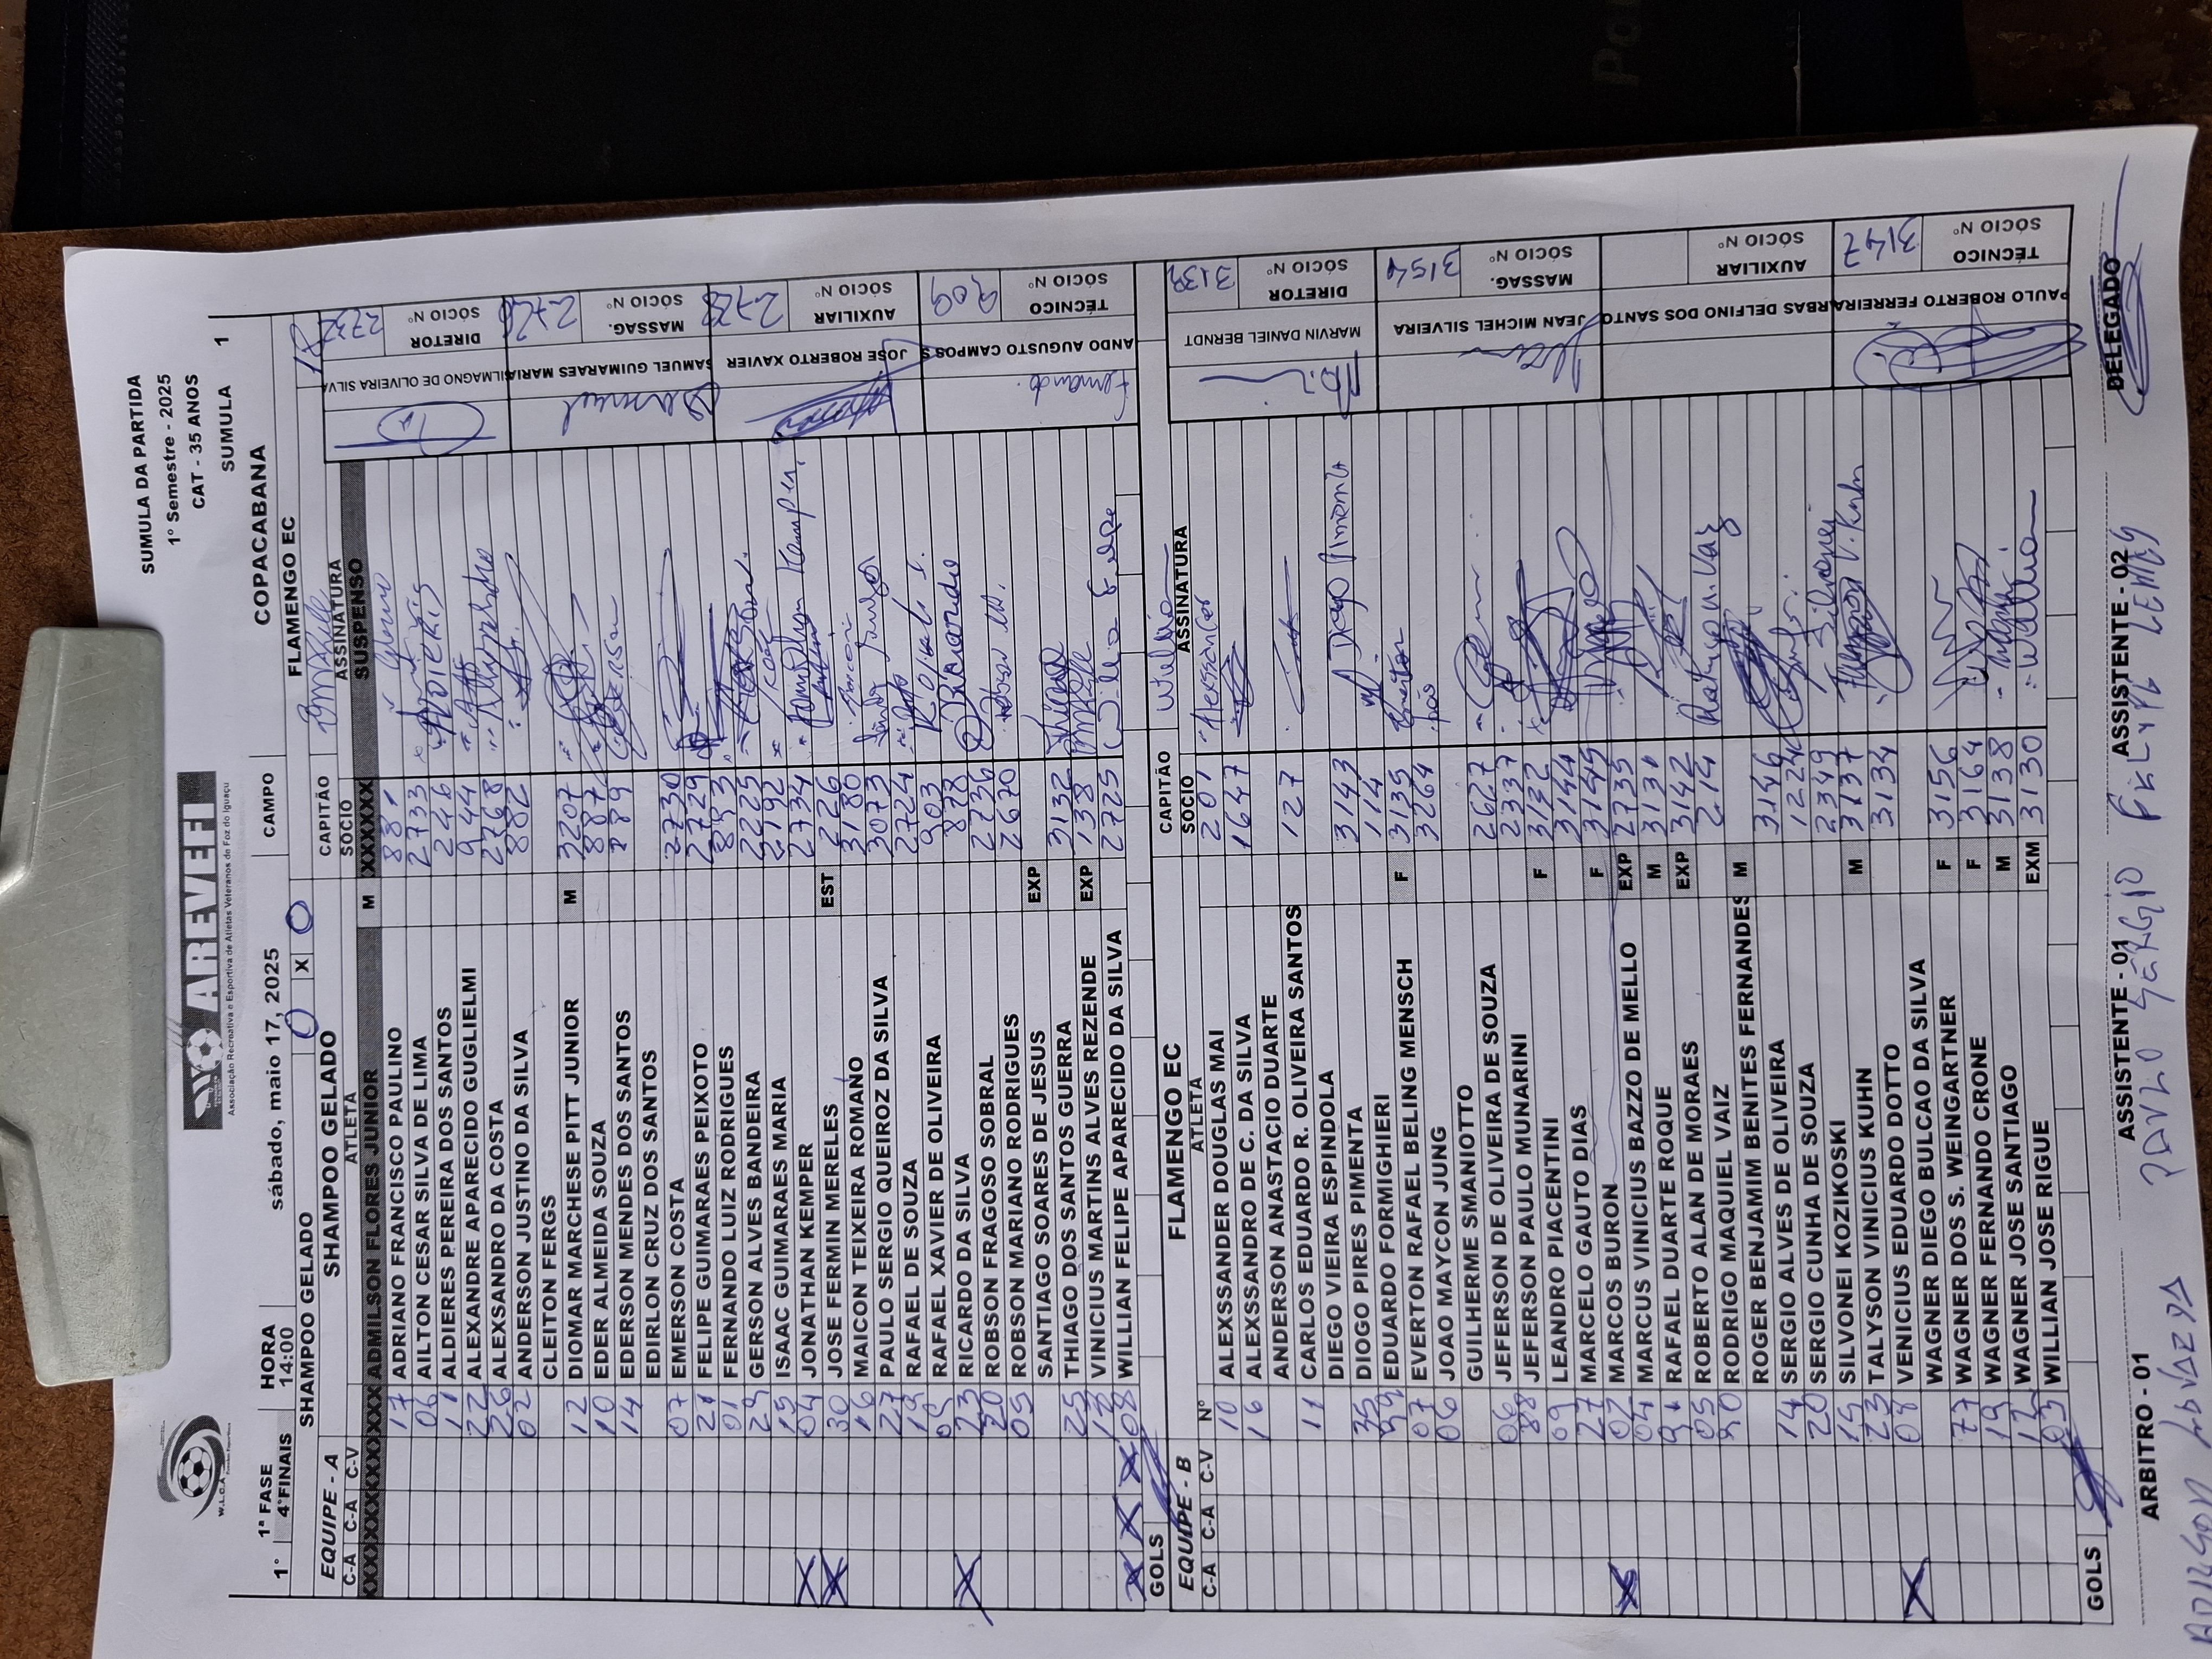 SUMULA DA PARTIDA
1º Semestre - 2025
CAT - 35 ANOS
SUMULA 1
W.L.C.A
AREVEFI
Associação Recreativa e Esportiva de Atletas Veteranos de Foz do Iguaçu
1ª FASE HORA sábado, maio 17, 2025 CAMPO COPACABANA
1° 4ªFINAIS 14:00
SHAMPOO GELADO 0 X 0 FLAMENGO EC
EQUIPE - A SHAMPOO GELADO CAPITÃO
C-A C-A C-V ATLETA SÓCIO ASSINATURA
ADMILSON FLORES JUNIOR M XXXXXX SUSPENSO
17 ADRIANO FRANCISCO PAULINO 881
06 AILTON CESAR SILVA DE LIMA 2733
11 ALDIERES PEREIRA DOS SANTOS 2446
22 ALEXANDRE APARECIDO GUGLIELMI 944
26 ALEXSANDRO DA COSTA 2768
02 ANDERSON JUSTINO DA SILVA 882
CLEITON FERGS
12 DIOMAR MARCHESE PITT JUNIOR M 3207
10 EDER ALMEIDA SOUZA 887
14 EDERSON MENDES DOS SANTOS 889
EDIRLON CRUZ DOS SANTOS
07 EMERSON COSTA 2730
21 FELIPE GUIMARAES PEIXOTO 2729
01 FERNANDO LUIZ RODRIGUES 893
29 GERSON ALVES BANDEIRA 2225
15 ISAAC GUIMARAES MARIA 2192
X 04 JONATHAN KEMPER 2734 Jonathan Kemper
X 30 JOSE FERMIN MERELES EST 226
16 MAICON TEIXEIRA ROMANO 3180
27 PAULO SERGIO QUEIROZ DA SILVA 3073
19 RAFAEL DE SOUZA 2724
09 RAFAEL XAVIER DE OLIVEIRA 903
X 23 RICARDO DA SILVA 878 Ricardo
20 ROBSON FRAGOSO SOBRAL 2736
05 ROBSON MARIANO RODRIGUES 2670 Robson M.
SANTIAGO SOARES DE JESUS EXP
25 THIAGO DOS SANTOS GUERRA 3132 Thiago
18 VINICIUS MARTINS ALVES REZENDE EXP 138
X X X 08 WILLIAN FELIPE APARECIDO DA SILVA 2725
GOLS
2732 SÓCIO Nº DIRETOR ILMAGNO DE OLIVEIRA SILVA
2726 SÓCIO Nº MASSAG. SAMUEL GUIMARAES MARIA Samuel
2728 SÓCIO Nº AUXILIAR JOSE ROBERTO XAVIER
909 SÓCIO Nº TÉCNICO ANDO AUGUSTO CAMPOS S Fernando
EQUIPE - B FLAMENGO EC CAPITÃO
C-A C-A C-V Nº ATLETA SOCIO ASSINATURA
10 ALEXSSANDER DOUGLAS MAI 201 Alexssander
16 ALEXSSANDRO DE C. DA SILVA 1647
ANDERSON ANASTACIO DUARTE
11 CARLOS EDUARDO R. OLIVEIRA SANTOS 127
DIEGO VIEIRA ESPINDOLA
35 DIOGO PIRES PIMENTA 3143 Diogo Pimenta
99 EDUARDO FORMIGHIERI 114
07 EVERTON RAFAEL BELING MENSCH F 3135 Everton
06 JOAO MAYCON JUNG 3264 João
GUILHERME SMANIOTTO
06 JEFERSON DE OLIVEIRA DE SOUZA 2627
88 JEFERSON PAULO MUNARINI 2337
09 LEANDRO PIACENTINI F 3192
27 MARCELO GAUTO DIAS 3144
X 02 MARCOS BURON F 3145
04 MARCUS VINICIUS BAZZO DE MELLO EXP 2735
91 RAFAEL DUARTE ROQUE M 3131
05 ROBERTO ALAN DE MORAES EXP 3142
90 RODRIGO MAQUIEL VAIZ 214
ROGER BENJAMIM BENITES FERNANDES M
14 SERGIO ALVES DE OLIVEIRA 3146
20 SERGIO CUNHA DE SOUZA 1224
15 SILVONEI KOZIKOSKI 2349 Silvonei
23 TALYSON VINICIUS KUHN M 3137
X 08 VENICIUS EDUARDO DOTTO 3134
WAGNER DIEGO BULCAO DA SILVA
77 WAGNER DOS S. WEINGARTNER F 3156
19 WAGNER FERNANDO CRONE F 3164
12 WAGNER JOSE SANTIAGO M 3138
03 WILLIAN JOSE RIGUE EXM 3130 Willian
GOLS
3139 SÓCIO Nº DIRETOR MARVIN DANIEL BERNDT
3154 SÓCIO Nº MASSAG. JEAN MICHEL SILVEIRA Jean
SÓCIO Nº AUXILIAR RBAS DELFINO DOS SANTO
3147 SÓCIO Nº TÉCNICO PAULO ROBERTO FERREIRA
ARBITRO - 01 ASSISTENTE - 01 ASSISTENTE - 02 DELEGADO
PAULO SÉRGIO FELYPE LEMES